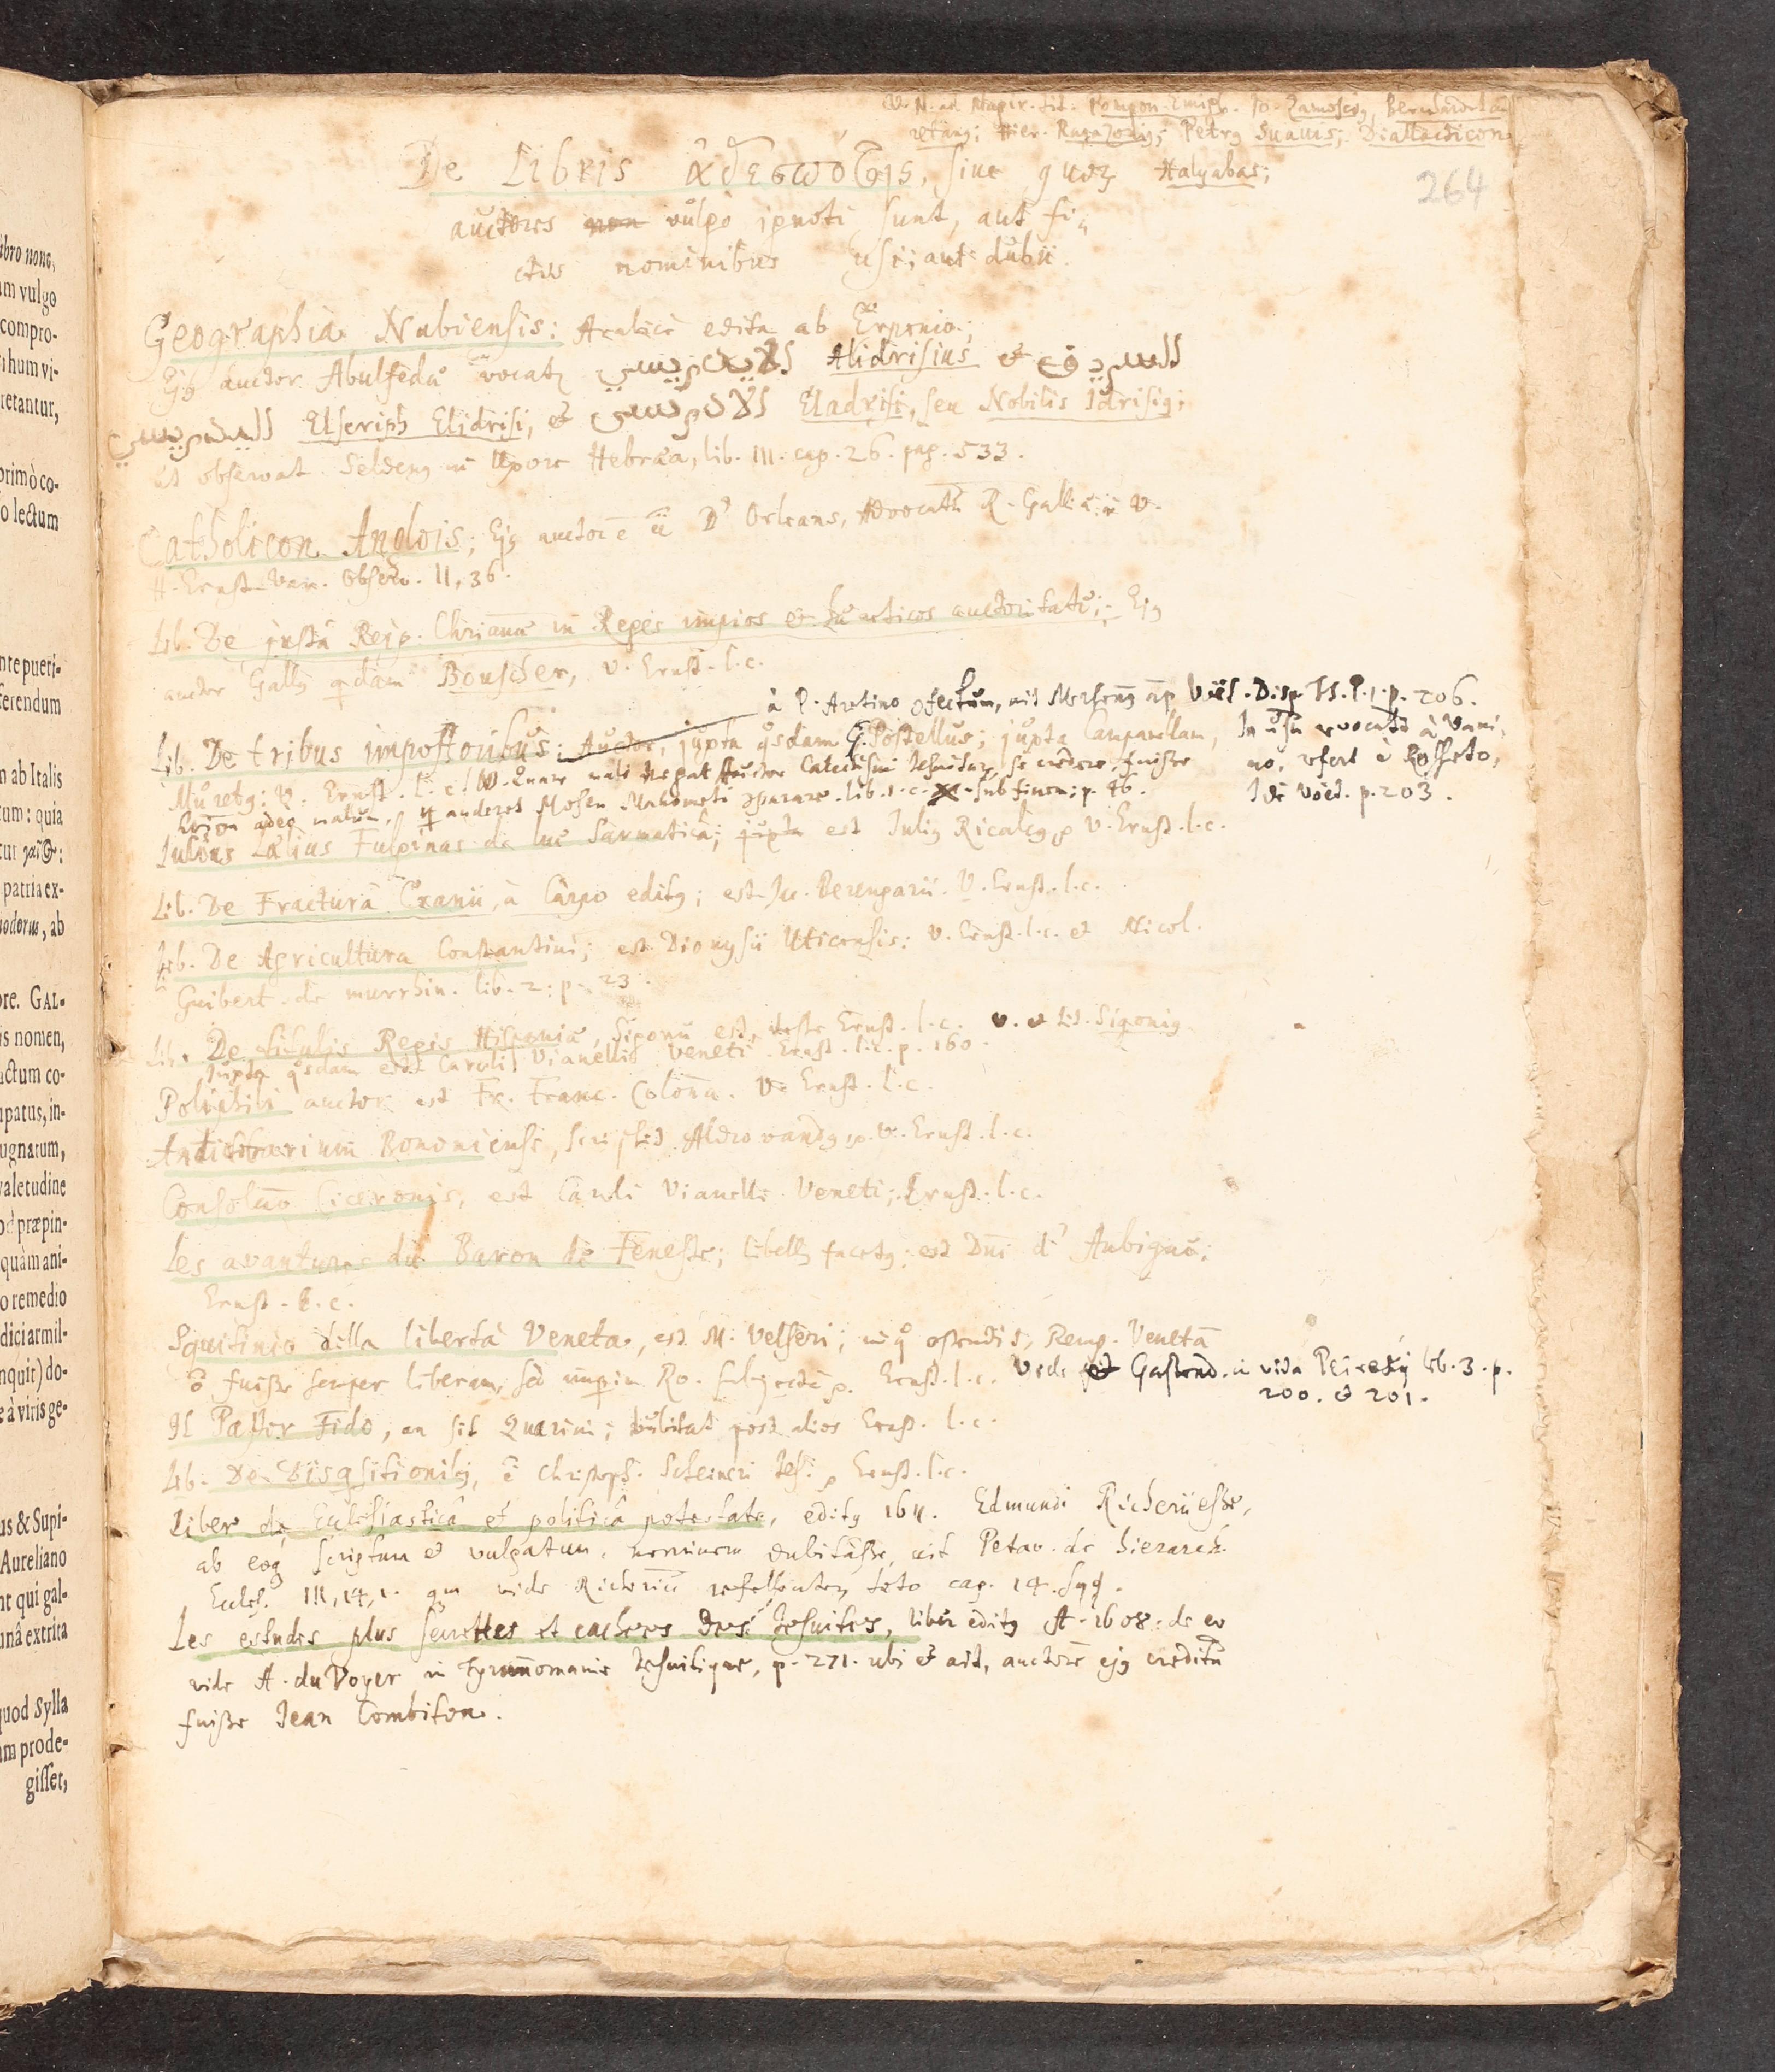 ibro nono,
am vulgo
compro-
hum vi-
retantur,
primò co-
o lectum
nte pueri-
ferendum
m ab Italis
tum: quia
patria ex-
oderus, ab
ore. GAL-
is nomen,
actum co-
upatus, in-
ugnatum,
valetudine
od præpin-
quàm ani-
o remedio
dici armil-
nquit) do-
e à viris ge-
us & Supi-
Aureliano
nt qui gal-
unâ extrita
quod Sylla
am prode-
gisset,
Jo. Zamoscig,
Hier. Ragazonig; Petrg Suavis; Diallacticon
De Libris ἀδεσπότοις, sive quoz Halyabas;
264
auctores non vulgo ignoti sunt, aut fi-
ctis nominibus usi; aut dubii.
Geographia Nubiensis: Arabicè edita ab Erpenio;
Ejg auctor Abulfedæ vocatz الاديريسي Alidrisius et
Elseriph Elidrisi, et الادريسي Eladrisi, seu Nobilis Idrisig;
ut observat Seldeng in Uxore Hebræa, lib. III. cap. 26. pag. 533.
Catholicon Anglois; Ejg auctor ē D' Orleans, Advocatg R. Galliæ; v.
H. Ernst. Var. Observ. II, 36.
Lib. De justa Reip. Chrianæ in Reges impios et hæreticos auctoritate; Ejg
auctor Gallg qdam Bouscher, v. Ernst. l.c.
à P. Aretino ofectum, ait Merseng ap. Voët. Disp. Th. P. 1. p. 206.
Lib. De tribus impostoribus: Auctor, juxta qsdam G. Postellus; juxta Campanellam,
In usu revocatū à Vani,
Muretg: V. Ernst. l.c. negat Auctor Catechismi Jesuitar, se credere, fuisse
no, refert è Rosseto,
adeo malum, q auderet Mosen Mahometi oparare. lib. 1. c. sub finem; p. 46.
Idē Voët. p. 203.
Julius Lælius Fulginas de lue Sarmatica; juxta est Julig Ricalcg, v. Ernst. l.c.
Lib. De Fractura Cranii, à Carpo editg; est Jac. Berengarii. V. Ernst. l.c.
Lib. De Agricultura Constantini; est Dionysii Uticensis: v. Ernst. l.c. et Nicol.
Guibert. de murrhin. lib. 2. p. 23.
Lib. De titulis Regis Hispaniæ, Sigonii est, teste Ernst. l.c. v. et tit. Sigonig.
Juxta qsdam est Caroli Vianelli Veneti. Ernst. l.c. p. 160.
Poliphili auctor est Fr. Franc. Colonna. V. Ernst. l.c.
Antidotarium Bononiense, scripsit Aldrovandg, v. Ernst. l.c.
Consolaō Ciceronis; est Caroli Vianelli Veneti; Ernst. l.c.
Les avantures du Baron de Feneste; libellg facetg; est Dni d' Aubigné;
Ernst. l.c.
Squitinio della libertà Veneta, est M. Velseri; in q ostendit, Remp. Venetā
ō fuisse semper liberam, sed imperio Ro. subjectā. Ernst. l.c. Vide et Gassend. in vita Peireskij lib. 3. p.
200. et 201.
Il Pastor Fido, an sit Quarini; dubitat post alios Ernst. l.c.
Lib. De Disqsitionibg, ē Christoph. Scheineri Jes. Ernst. l.c.
Liber de Ecclesiastica et politica potestate, editg 1611. Edmundi Richerii esse,
ab eoq scriptum et vulgatum, neminem dubitasse, ait Petav. de hierarch.
Eccles. III, 14, 1. qm vide Richeriū refellentem toto cap. 14. sqq.
Les estudes plus secrettes et cachees des Jesuites, liber editg A. 1608: de eo
vide A. du Voyer in Tyrannomanie Jesuitique, p. 271. ubi et ait, auctorē ejg creditū
fuisse Jean Combiton.